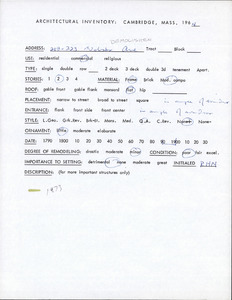 ARCHITECTURAL INVENTORY: CAMBRIDGE, MASS, 196
DEMOLISHED
ADDRESS: Ave Tract Block
USE: residential commercial religious
TYPE: single double row 2 deck 3 deck double 3d tenement Apart.
STORIES: 1 2 3 4 MATERIAL: Frame Brick Mod.
ROOF: gable front gable flank mansard flat hip
PLACEMENT: narrow to street broad to street in angle of
ENTRANCE: flank front front center side in angle of
STYLE: L.Geo. Grk.Rev. Brk-It. Mans. Med. Q.A. C.Rev. None
ORNAMENT: little moderate elaborate
DATE: 1790 1800 10 20 30 40 50 60 70 80 90 1900 10 20 30
DEGREE OF REMODELING: drastic moderate minor CONDITION: poor fair excel.
IMPORTANCE TO SETTING: detrimental none moderate great INITIALED RHN
DESCRIPTION: (for more important structures only)
1973